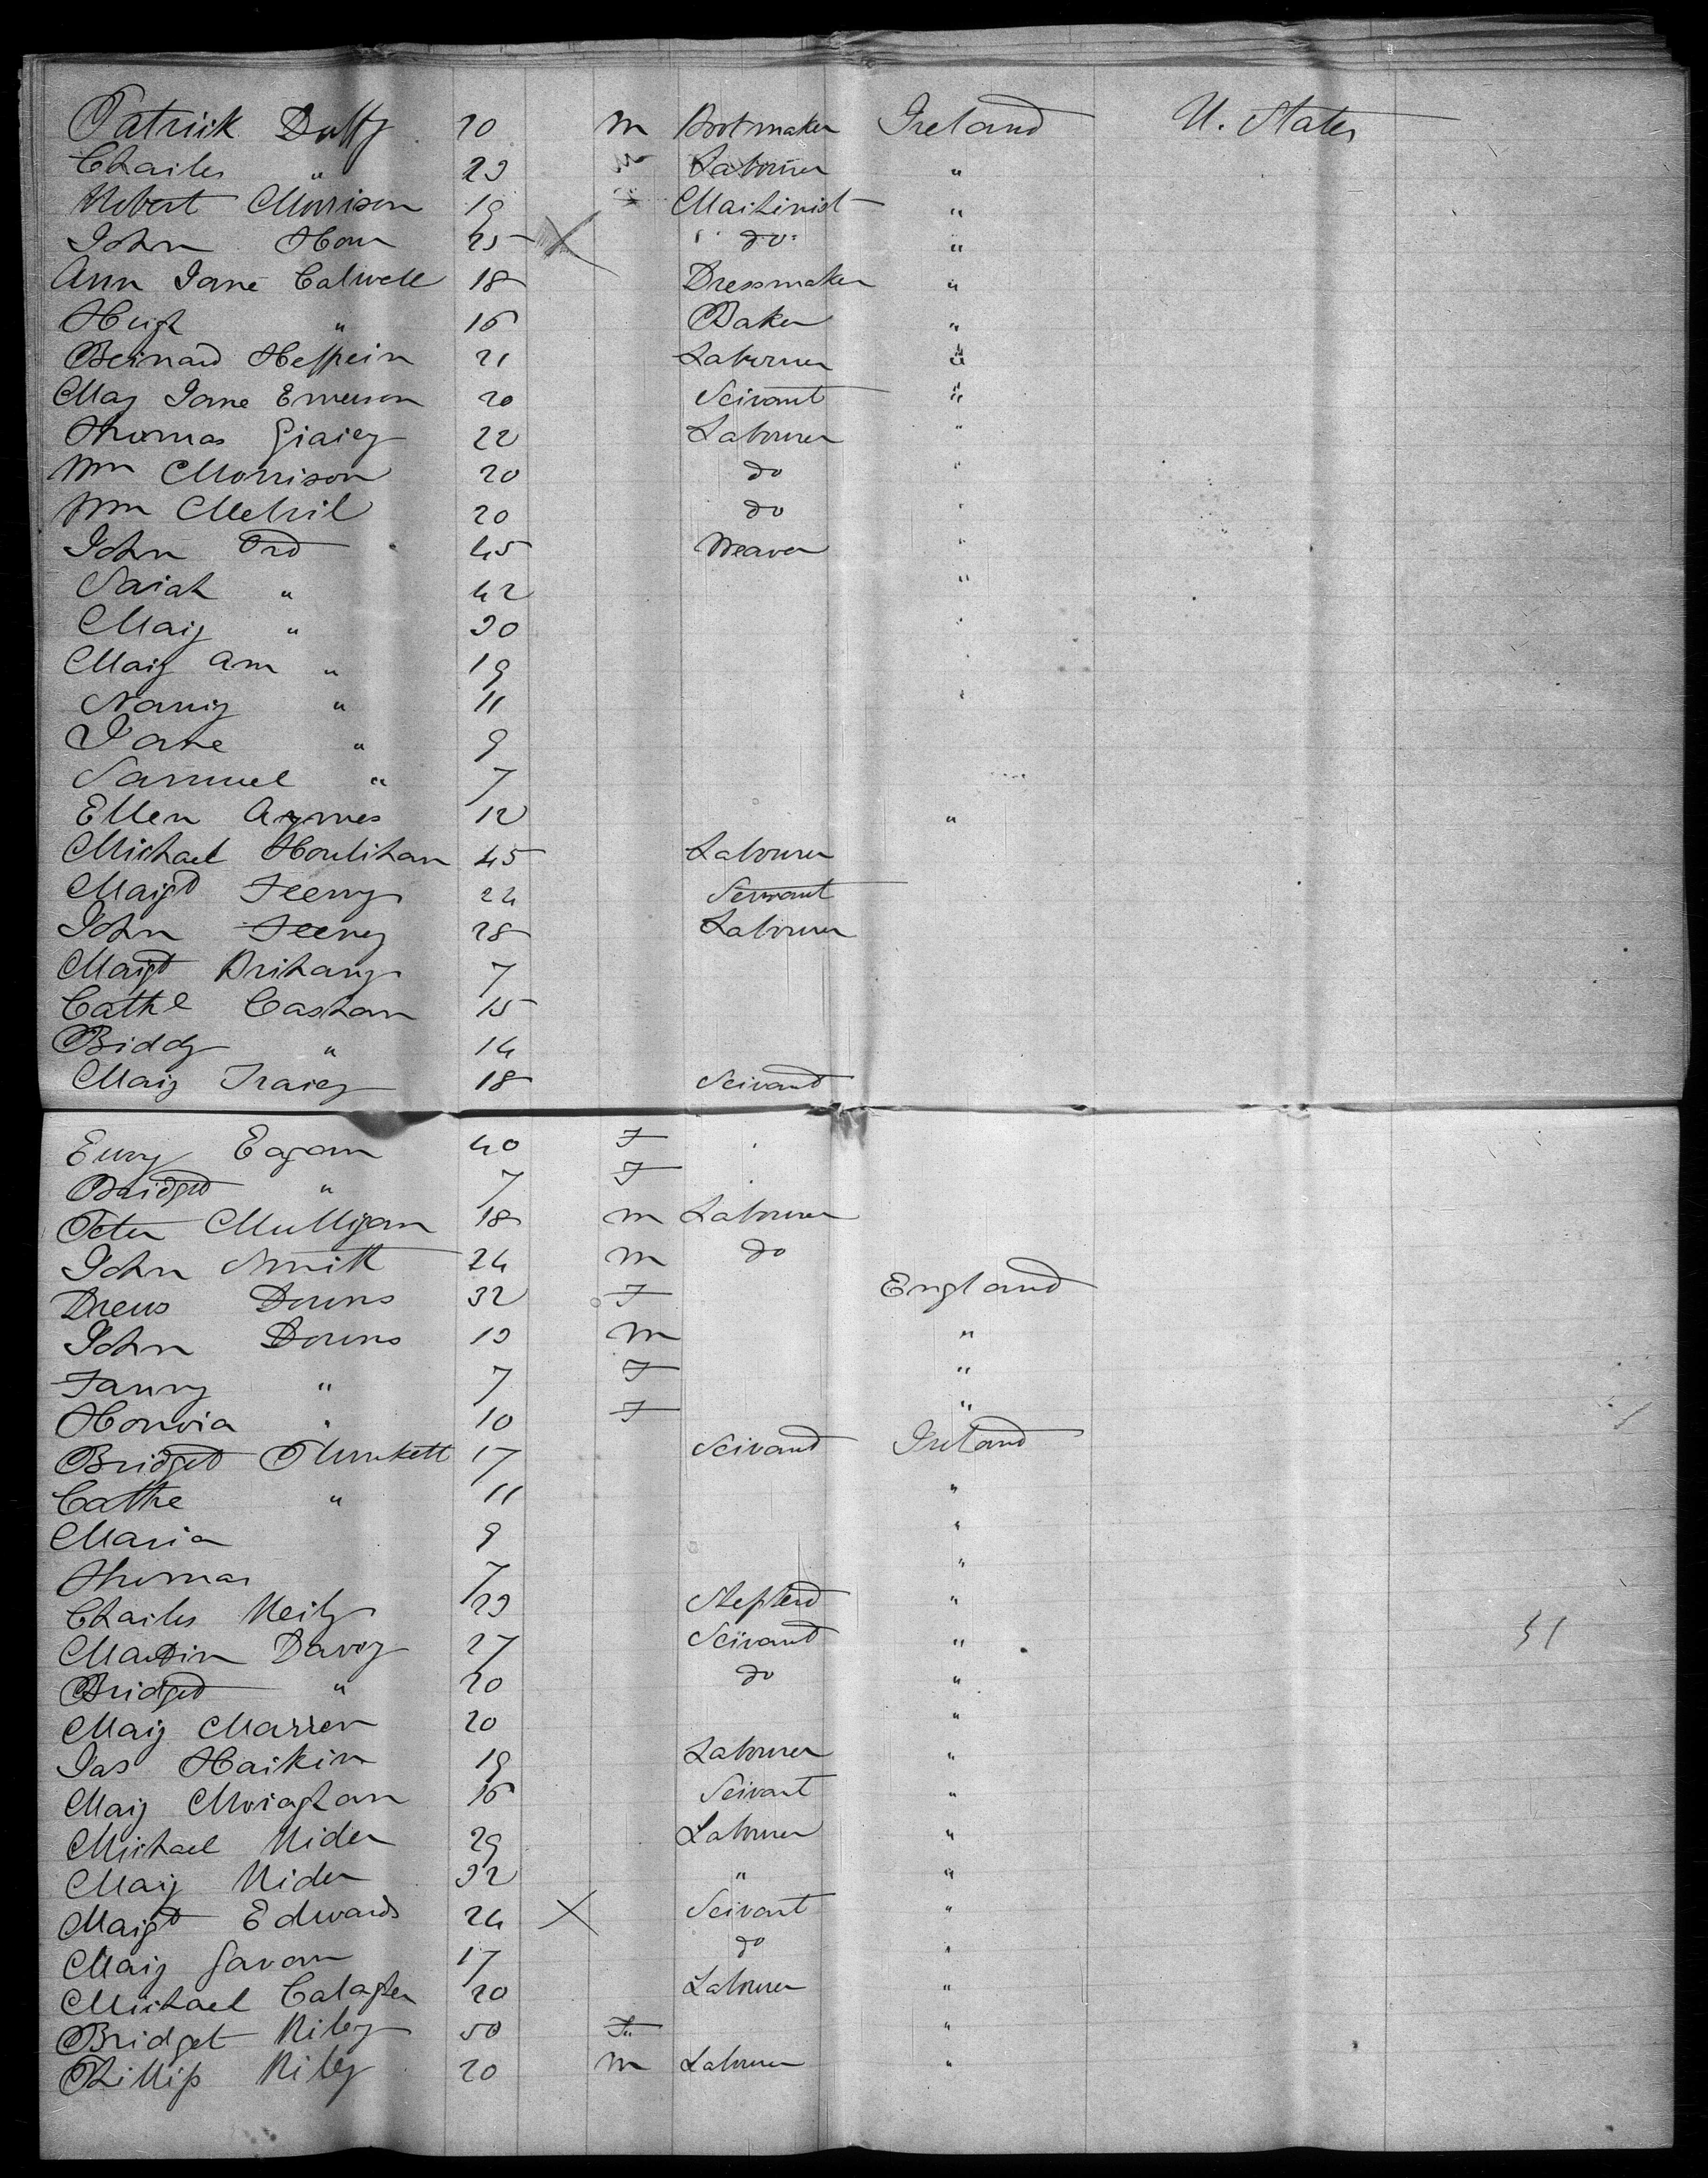 Patrick Duffy 20 m Bootmaker Ireland U. States
Charles " 23 m Labourer "
Robert Morrison 19 " Machinist "
John How 25 X do "
Ann Jane Calwell 18 Dressmaker "
Hugh " 16 Baker "
Bernard Heffrein 21 Labourer "
Mary Jane Emerson 20 Servant "
Thomas Grarey 22 Labourer "
Wm Morrison 20 do "
Wm 20 do "
John Ord 45 Weaver "
Sarah " 42 "
Mary " 30 "
Mary Ann " 19 "
Nancy " 11 "
Jane " 9
Samuel " 7
Ellen Agnnes 12 "
Michael Houlihan 45 Labourer
Margt Feeny 24 Servant
John Feeney 28 Labourer
Margt 7
Cathe Cashan 15
Biddy " 14
Mary Tracey 18 Servant
Eagan 40 F
Bridget " 7 F
Peter Mulligan 18 m Labourer
John Smith 24 m do
Drews Downs 32 F England
John Downs 13 m "
Fanny " 7 F "
Honoria " 10 F "
Bridget Plunkett 17 Servant Ireland
Cathe " 11 "
Maria 9 "
Thomas 7 "
Charles Reily 23 Shepherd "
Martin Davey 27 Servant " 51
Bridget " 20 do "
Mary Marren 20 "
Jas Harkin 19 Labourer "
Mary Moraghan 16 Servant "
Michael Rider 29 Labourer "
Mary Rider 32 " "
Margt Edwards 24 X Servant "
Mary Gavan 17 do "
Michael Calagher 20 Labourer "
Bridget Riley 50 F "
Phillip Riley 20 m Labourer "